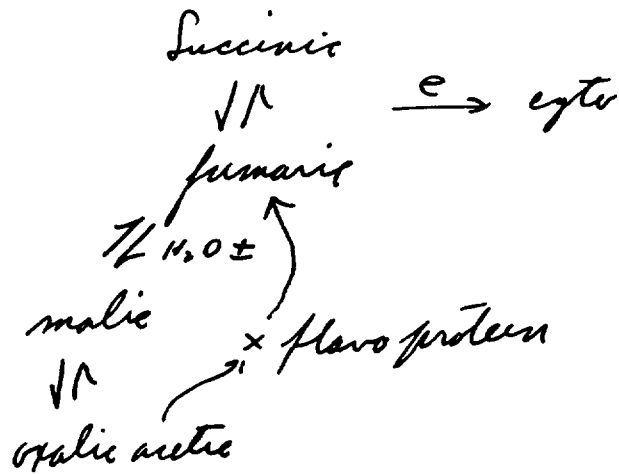 Succinic
e cyto
fumaric
H₂O ±
malic
x flavoprotein
oxalic acetic